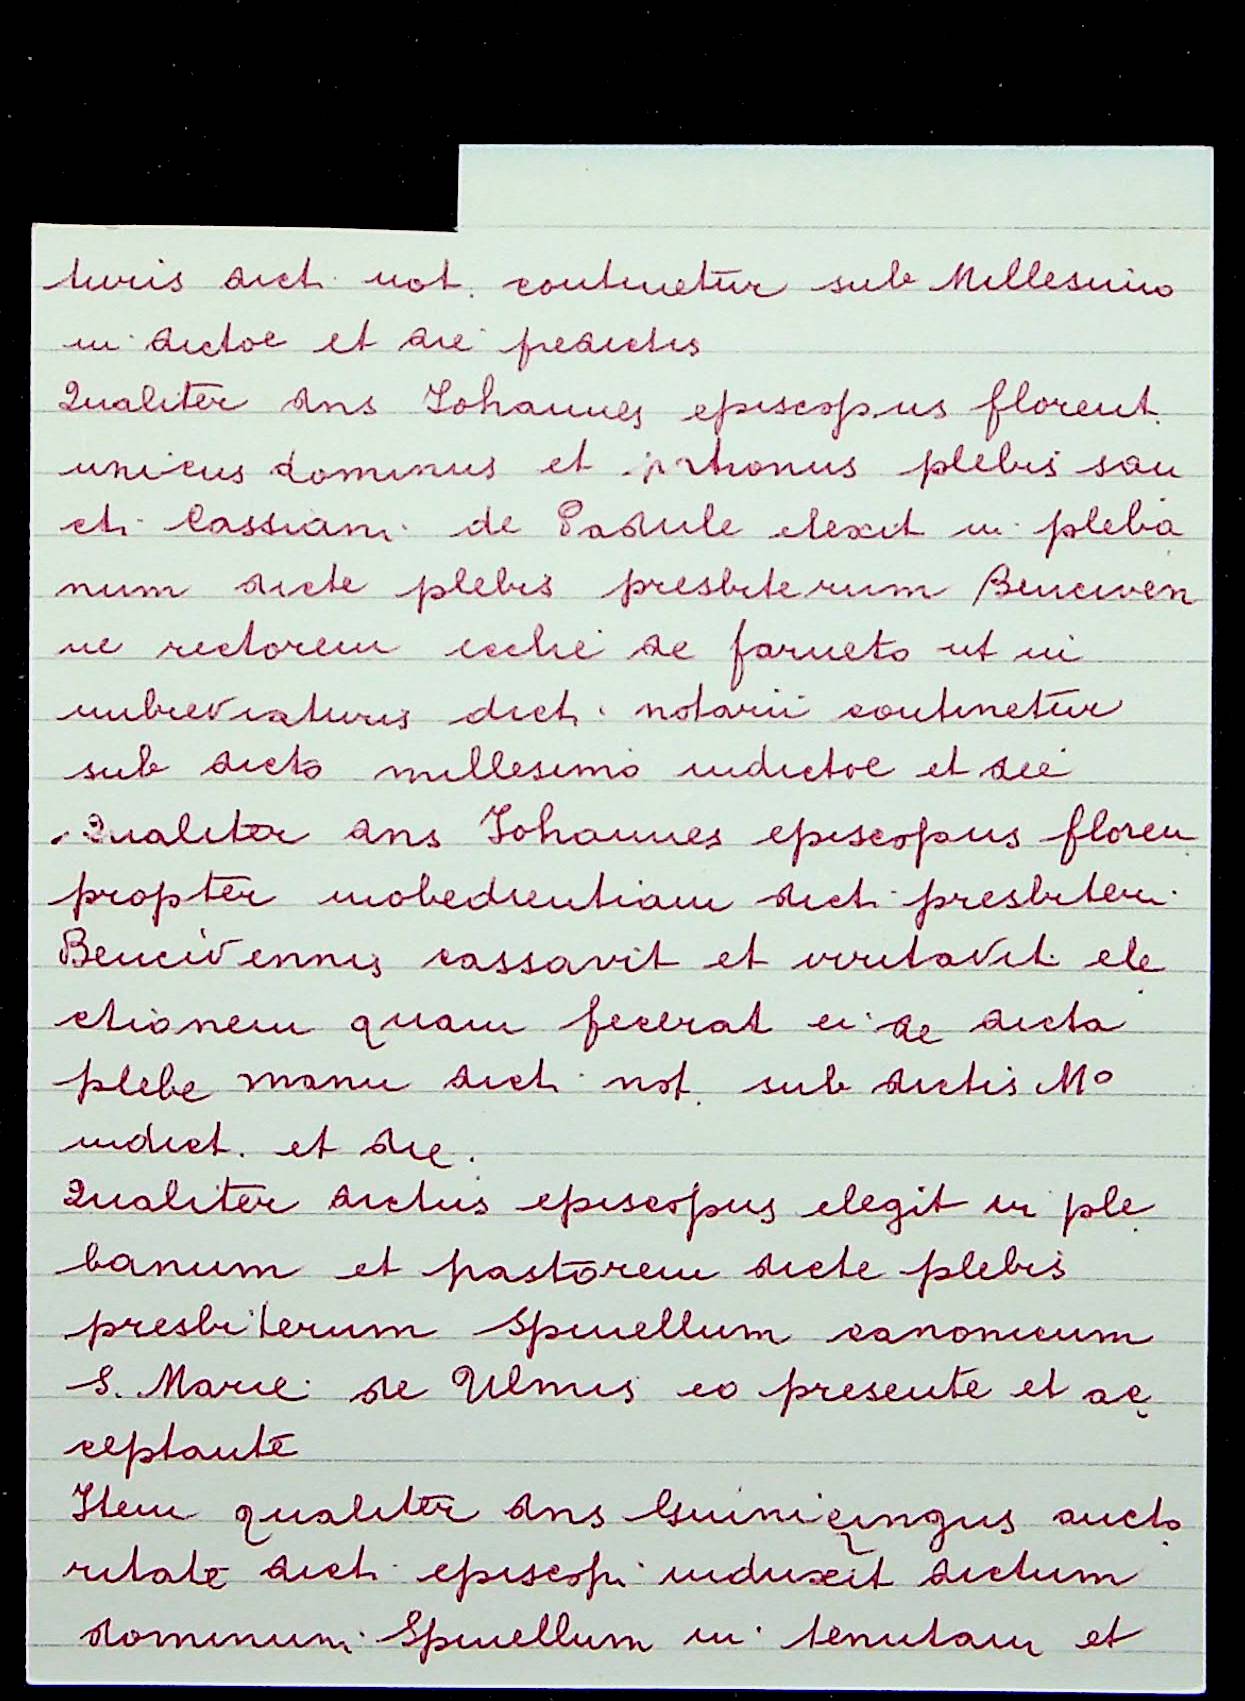 turis dicti not. continetur sub Millesimo
indictoe et die predictis
Qualiter dns Iohannes episcopus florent.
unicus dominus et patronus plebis san
cti Cassiani de Padule elexit in pleba
num dicte plebis presbiterum Benciven
ne rectorem ecclie de farneto ut in
imbreviaturis dicti notarii continetur
sub dicto millesimo indictoe et die
Qualiter dns Iohannes episcopus floren
propter inobedientiam dicti presbiteri
Bencivennis cassavit et irritavit ele
ctionem quam fecerat ei de dicta
plebe manu dicti not. sub dictis Mo
indict. et die.
Qualiter dictus episcopus elegit in ple
banum et pastorem dicte plebis
presbiterum Spinellum canonicum
S. Marie de Ulmis eo presente et ac
ceptante
Item qualiter dns Guiniçingus aucto
ritate dicti episcopi induxit dictum
dominum Spinellum in tenutam et